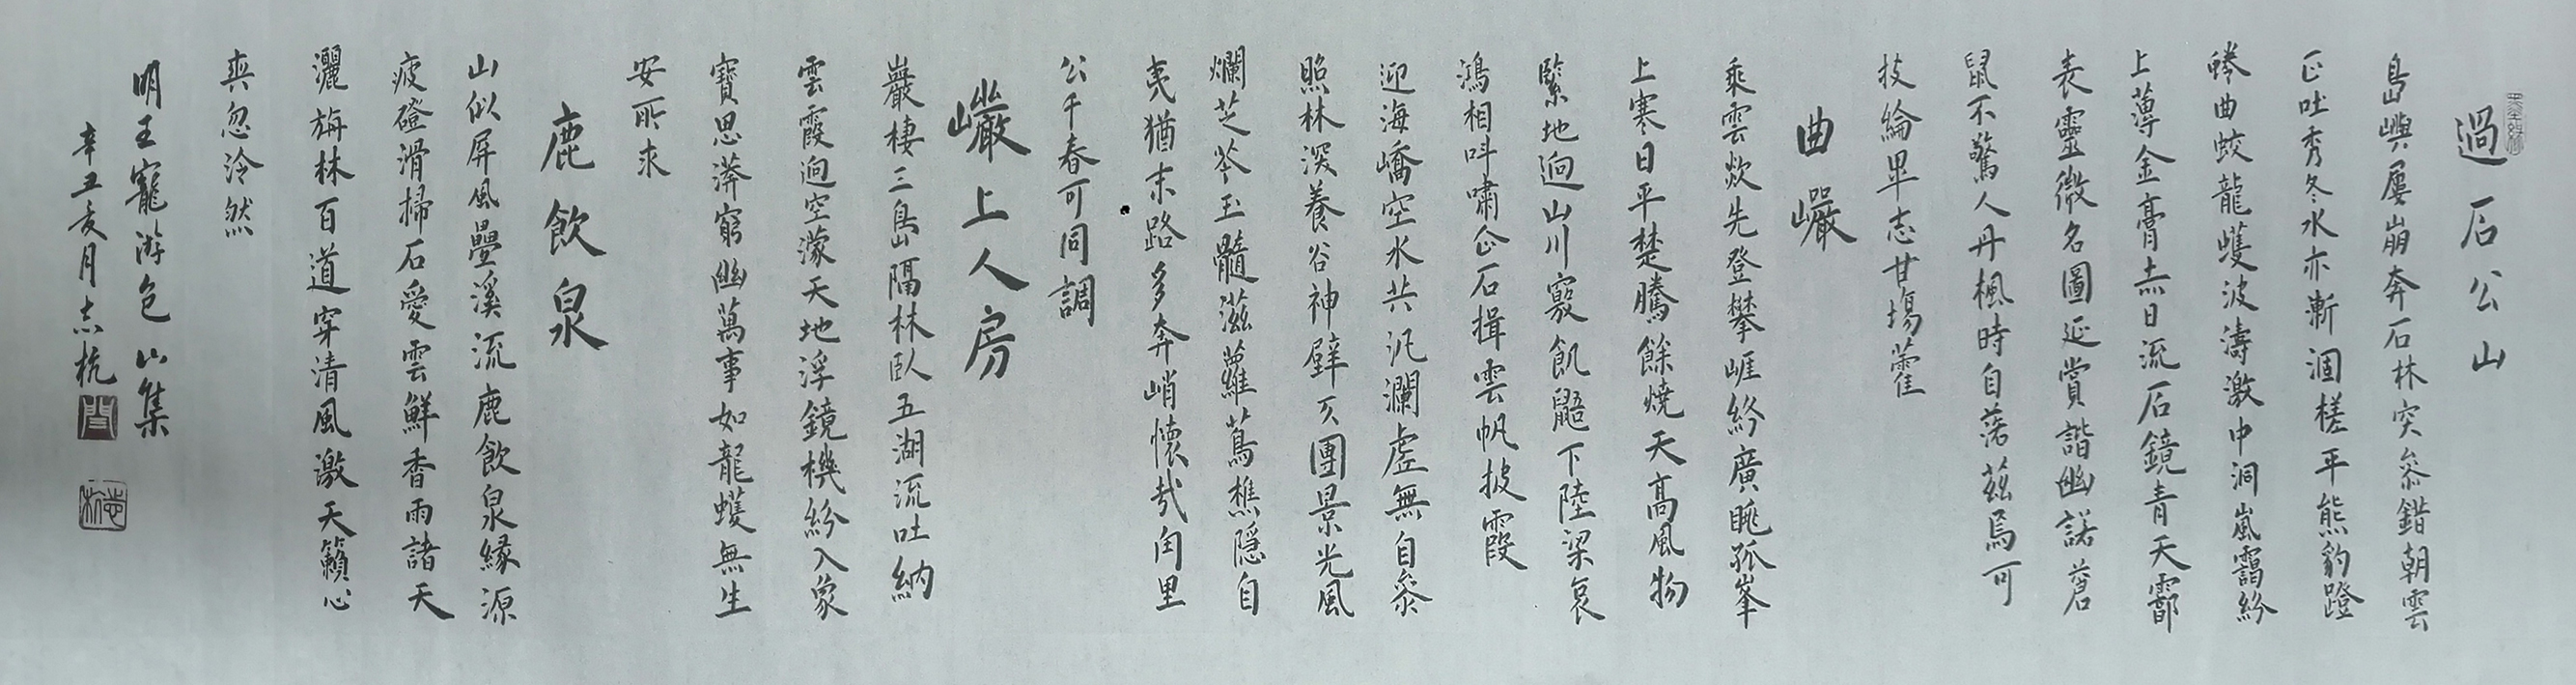 過石公山
島嶼屢崩奔石林突參錯朝雲
正吐秀冬水亦漸涸槎平熊豹蹬
蜷曲蛟龍蠖波濤激中洞嵐靄紛
上薄金膏赤日流石鏡青天霩
表靈微名圖延賞諧幽諾蒼
鼠不驚人丹楓時自落茲焉可
投綸畢志甘場藿
曲巖
乘雲欻先登攀崕紛廣眺孤峯
上寒日平楚騰餘燒天高風物
緊地迥山川竅飢鼯下陸梁哀
鴻相呌嘯企石揖雲帆披霞
迎海嶠空水共汎瀾虛無自參
照林深養谷神壁仄團景光風
爛芝苓玉髓滋蘿蔦樵隱自
夷猶末路多奔峭懷哉甪里
公千春可同調
巖上人房
巖棲三島隔林臥五湖流吐納
雲霞迥空濛天地浮鏡機紛入象
寶思漭窮幽萬事如龍蠖無生
安所求
鹿飲泉
山似屏風疊溪流鹿飲泉緣源
疲磴滑掃石愛雲鮮香雨諸天
灑旃林百道穿清風激天籟心
爽忽泠然
明王寵游包山集
辛丑亥月志杭